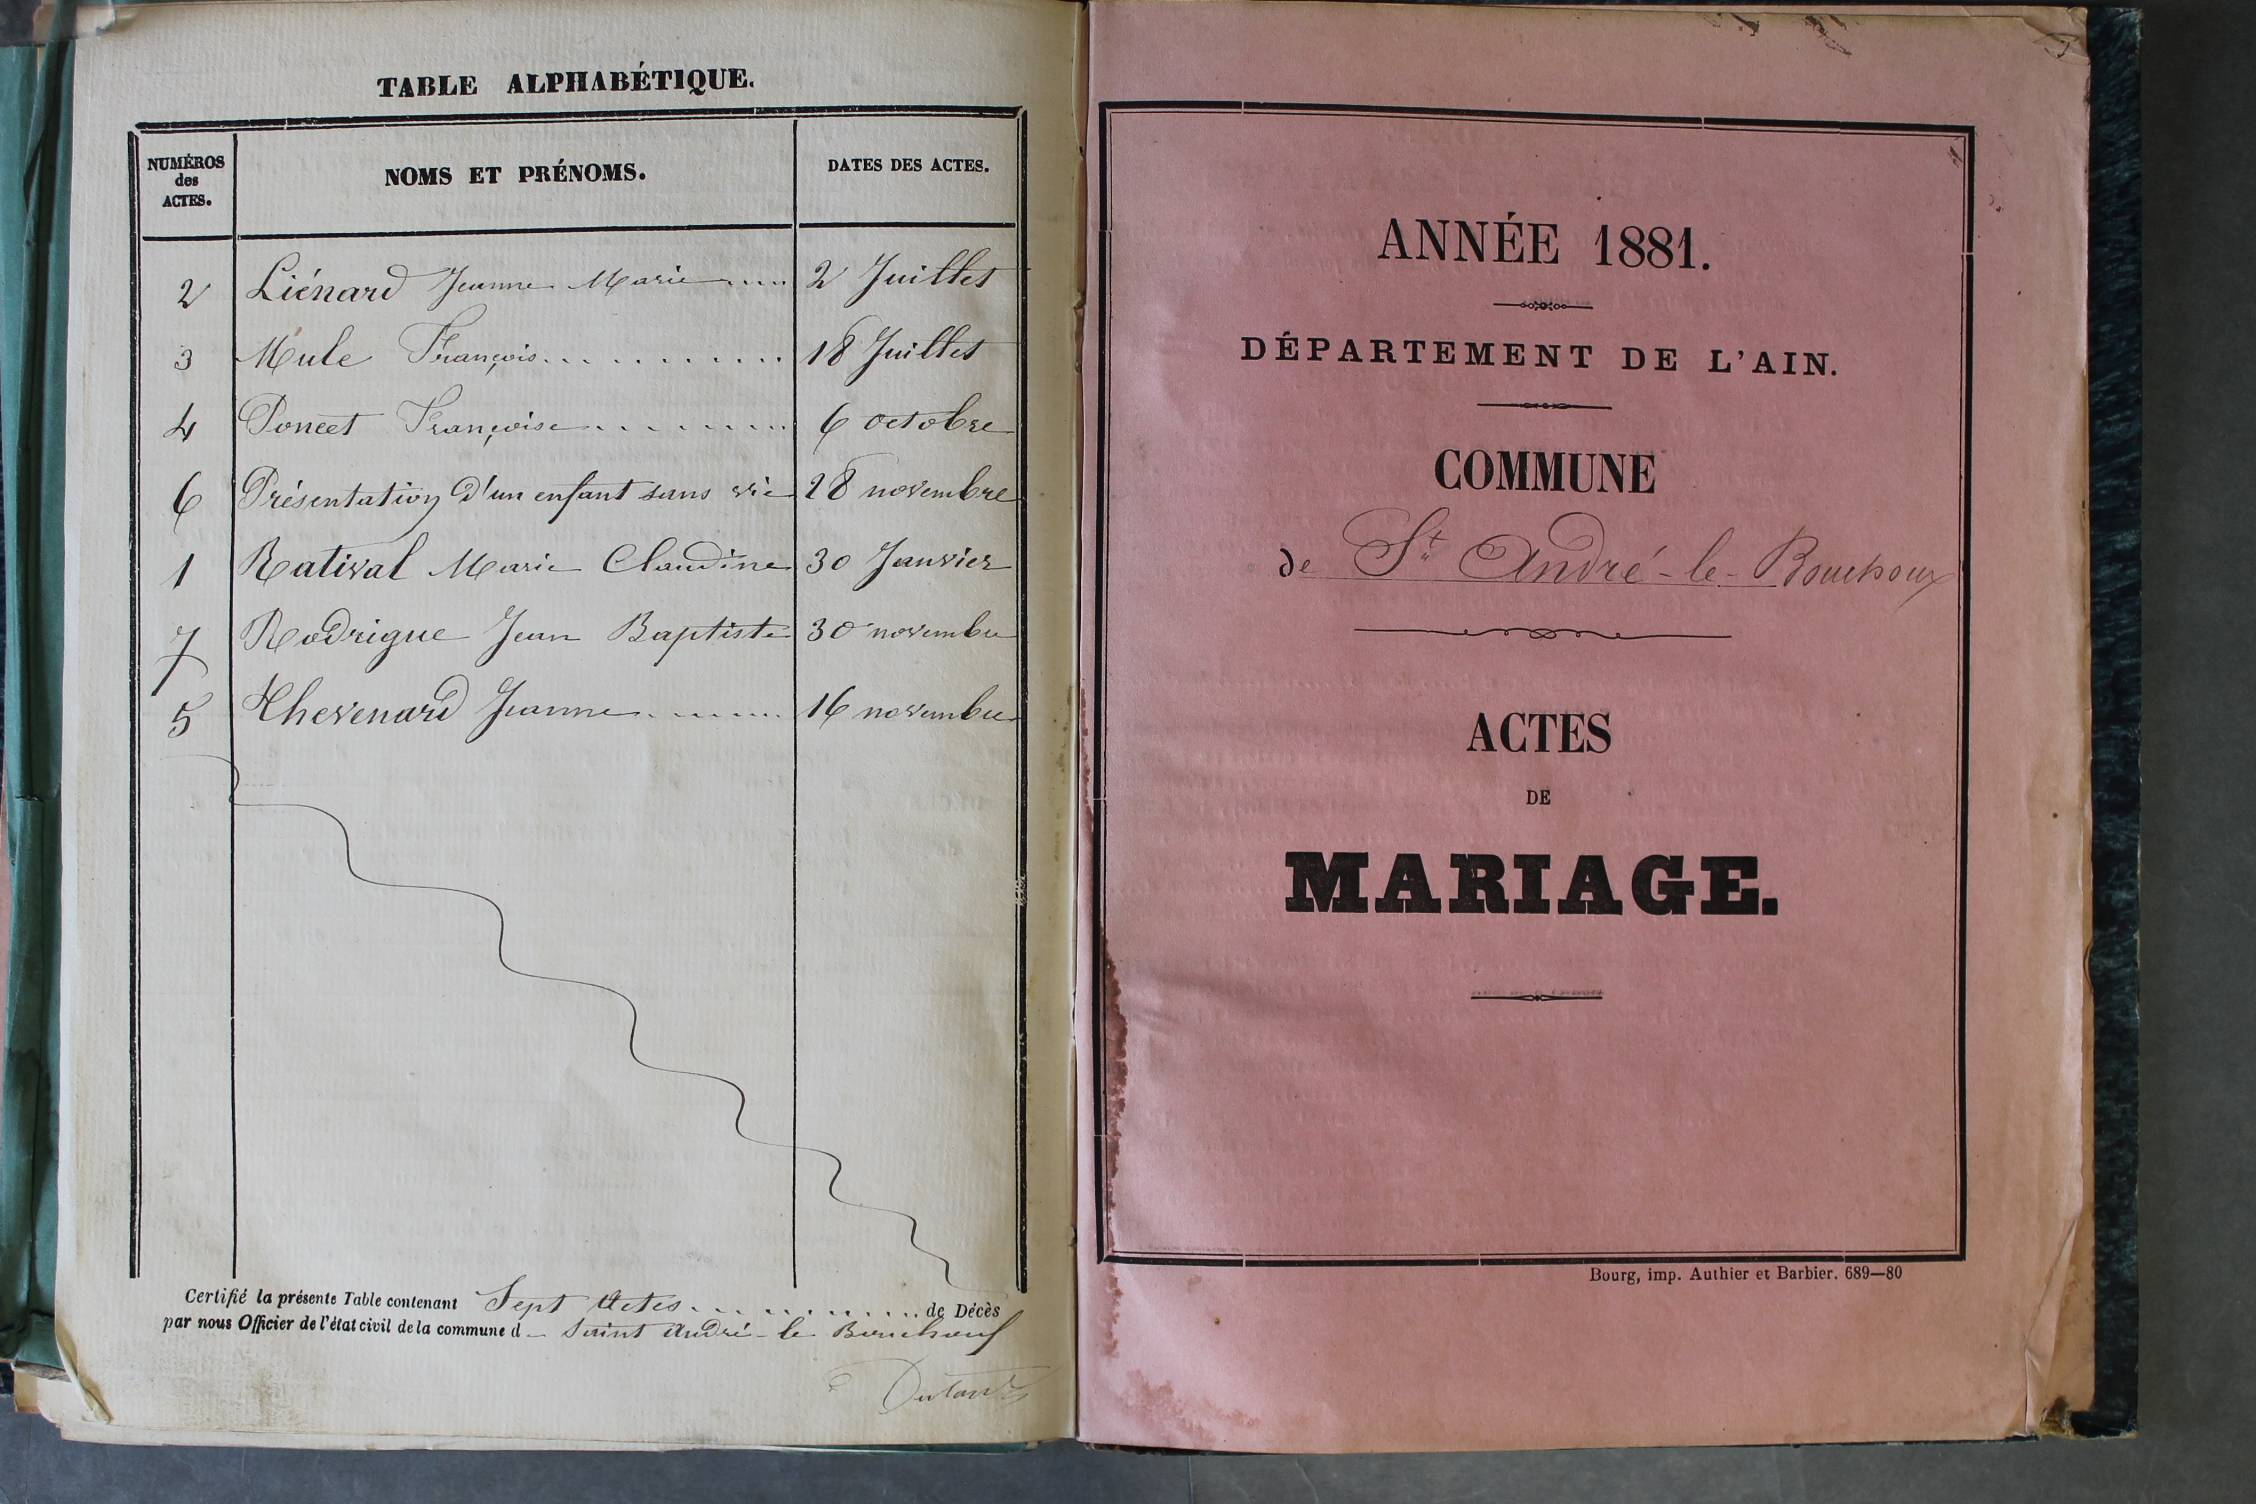 TABLE ALPHABÉTIQUE.
NUMÉROS des ACTES. NOMS ET PRÉNOMS. DATES DES ACTES.
2 Liénard Jeanne Marie ..... 2 Juillet
3 Mule François ........... 18 Juillet
4 Poncet Françoise ......... 6 octobre
6 Présentation d'un enfant sans vie 28 novembre
1 Rativat Marie Claudine 30 Janvier
7 Rodrigue Jean Baptiste 30 novembre
5 Thevenard Jeanne ........ 16 novembre
Certifié la présente Table contenant Sept Actes ............ de Décès
par nous Officier de l'état civil de la commune de Saint André-le Bouchoux
ANNÉE 1881.
DÉPARTEMENT DE L'AIN.
COMMUNE
de St André-le-Bouchoux
ACTES
DE
MARIAGE.
Bourg, imp. Authier et Barbier. 689—80